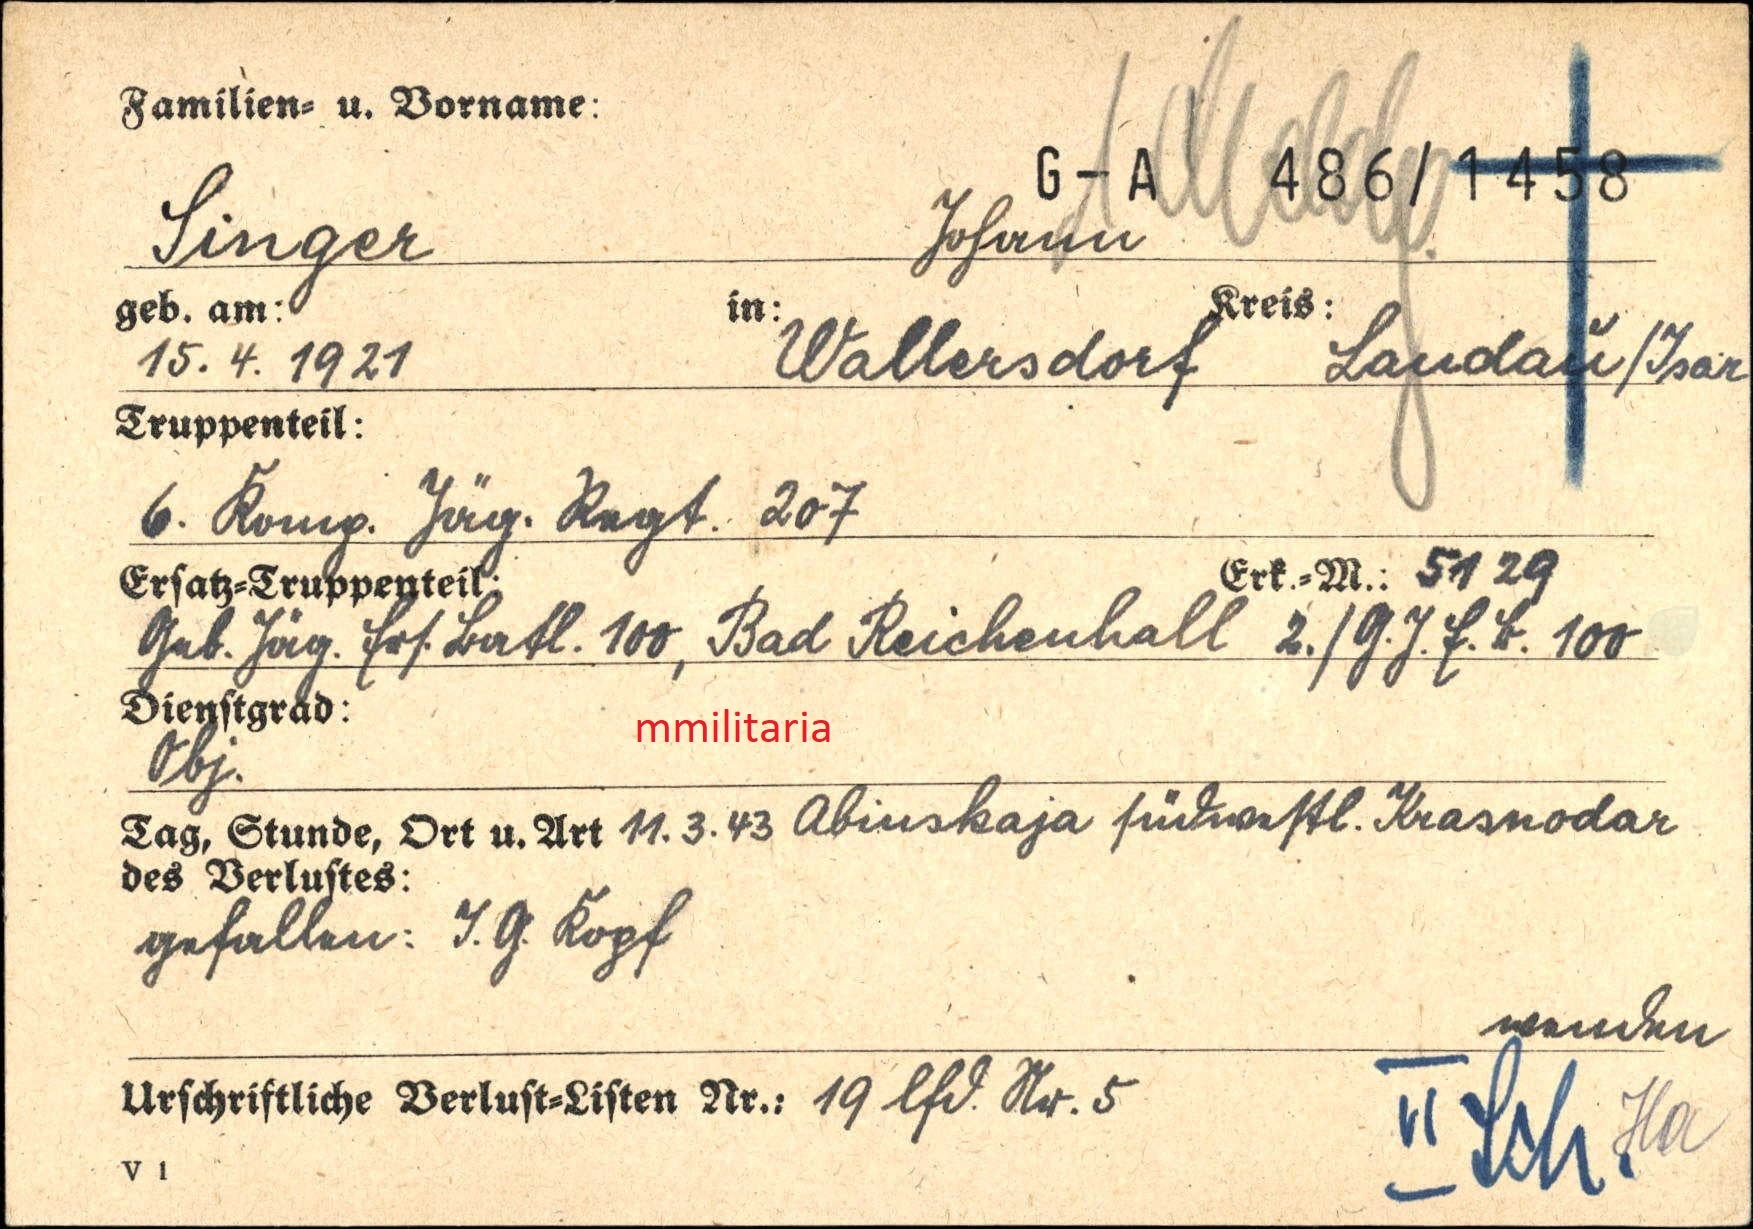 Familien- u. Vorname:
G-A 486/1458
Singer Johann
geb. am: in: Kreis:
15. 4. 1921 Wallersdorf Landau/Isar
Truppenteil:
6. Komp. Jäg. Regt. 207
Ersatz-Truppenteil: Erk.-M.: 5129
Geb. Jäg. Ers. Batl. 100, Bad Reichenhall 2./G.J.E.B. 100
Dienstgrad:
Obj.
mmilitaria
Tag, Stunde, Ort u. Art 11.3.43 Abinskaja südwestl. Krasnodar
des Verlustes:
gefallen: I.G. Kopf
wenden
Urschriftliche Verlust-Listen Nr.: 19 lfd. Nr. 5
VI Sch. Ha
V 1